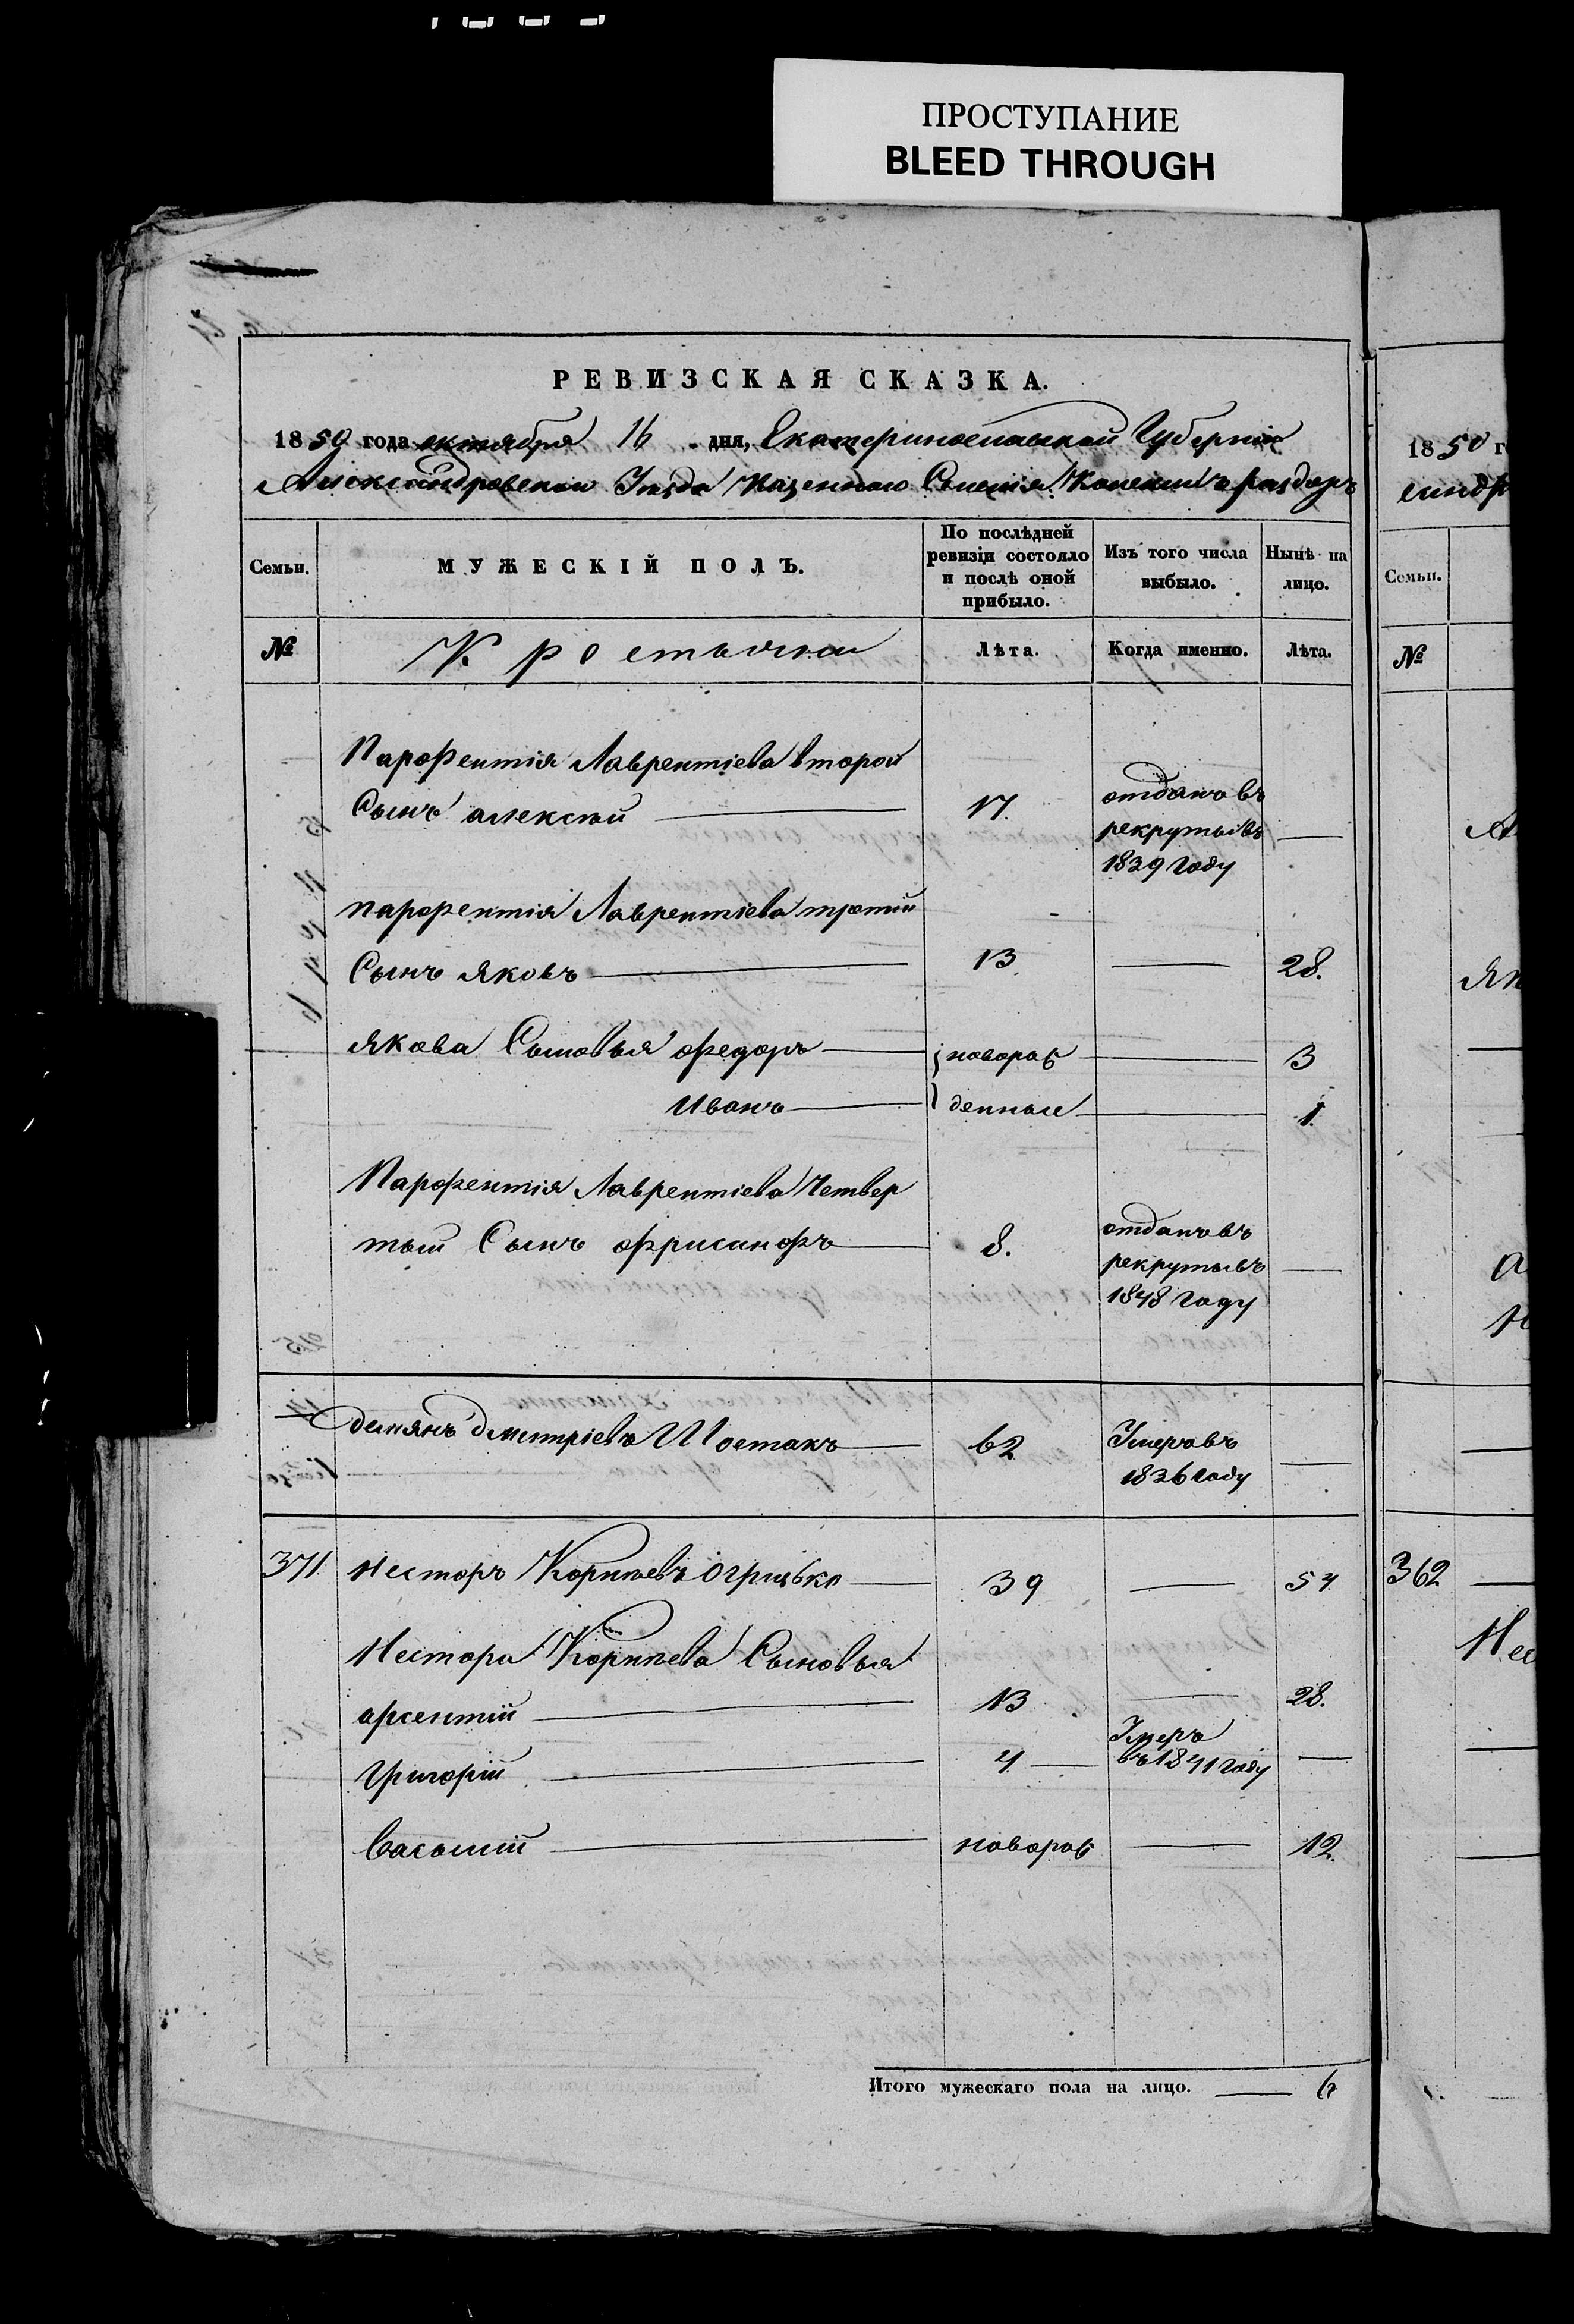 ПРОСТУПАНИЕ
BLEED THROUGH
РЕВИЗСКАЯ СКАЗКА.
1850 года октября 16 дня, Екатеринославской Губернии
Александровскаго Уезда Казеннаго Селения Каменныхъ раздоръ
Семьи.
МУЖЕСКІЙ ПОЛЪ.
По послѣдней
ревизіи состояло
и послѣ оной
прибыло.
Изъ того числа
выбыло.
Нынѣ на
лицо.
№
Крестьяни
Лѣта.
Когда именно.
Лѣта.
Парфентія Лаврентіева второй
Сынъ алексѣй 17. отданъ въ
рекруты въ
1839 году
парфентія Лаврентіева третий
Сынъ яковъ 13. 28.
якова Сыновья федоръ новорож 3
Иванъ денные 1.
Парфентія Лаврентіева Четвер
тый Сынъ 8. отданъ въ
рекруты въ
1848 году
демянъ дмитріевъ Шостакъ 62 Умеръ въ
1836 году
371. несторъ Карпиевъ Огрицько 39 54.
Нестора Карпиева Сыновья
арсентій 13 28.
Григорій 4 Умеръ
въ 1841 году
Василий новорож 12.
Итого мужескаго пола на лицо. 6
1850 г
Семьи.
№
362
Нес